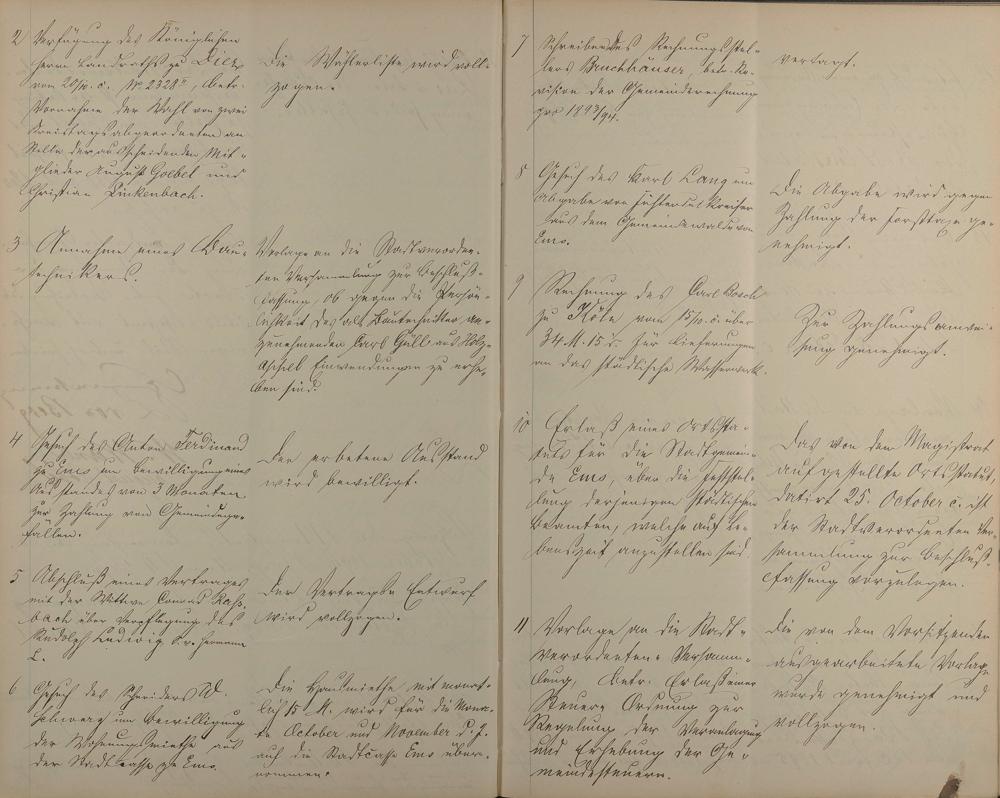 2 Verfügung des Königlichen
Herrn Landraths zu Diez
vom 20/10. c. No 2328 II, betr.
Vornahme der Wahl von zwei
Kreistagsabgeordneten an
Stelle der ausscheidenden Mit-
glieder August Goebel und
Christian Linkenbach.
Die Wählerliste wird voll-
zogen.
3 Annahme eines Bau-
technikers.
Vorlage an die Stadtverordne-
ten Versammlung zur Beschluß-
fassung, ob gegen die Persön-
lichkeit des als Bautechniker an-
zunehmenden Carl Güll aus Holz-
Einwendungen zu erhe-
ben sind.
4 Gesuch des Anton Ferdinand
zu Ems um Bewilligung eines
Ausstandes von 3 Monaten
zur Zahlung von Gemeindege-
fällen.
Der erbetene Ausstand
wird bewilligt.
5 Abschluß eines Vertrages
mit der Wittwe Conrad
bach über Verpflegung des
Rudolph Ludwig
L.
Der Vertrags Entwurf
wird vollzogen.
6 Gesuch des Schneiders W.
um Bewilligung
der Wohnungsmiethe aus
der Stadtcasse zu Ems.
Die Hausmiethe mit monat-
lich 15 M. wird für die Mona-
te October und November d. J.
auf die Stadtcasse Ems über-
nommen.
7 Schreiben des Rechnungsstel-
lers Bruchhäuser, betr. Re-
vision der Gemeinderechnung
pro 1893/94.
vertagt.
8 Gesuch des Karl Lang um
Abgabe von
aus dem Gemeindewalde von
Ems.
Die Abgabe wird gegen
Zahlung der Forsttaxe ge-
nehmigt.
9 Rechnung des Carl Bosch
zu Köln vom 15/10. c. über
34 M. 15 für Lieferungen
an das städtische Wasserwerk.
Zur Zahlungsanwei-
sung genehmigt.
10 Erlaß eines Ortssta-
tuts für die Stadtgemein-
de Ems, über die Feststel-
lung derjenigen städtischen
Beamten, welche auf Le-
benszeit anzustellen sind.
Das von dem Magistrat
aufgestellte Ortsstatut,
datirt 25. October c. ist
der Stadtverordneten Ver-
sammlung zur Beschluß-
fassung vorzulegen.
11 Vorlage an die Stadt-
verordneten-Versamm-
lung, betr. Erlaß einer
Steuer Ordnung zur
Regelung der Veranlagung
und Erhebung der Ge-
meindesteuern.
Die von dem Vorsitzenden
ausgearbeitete Vorlage
wurde genehmigt und
vollzogen.